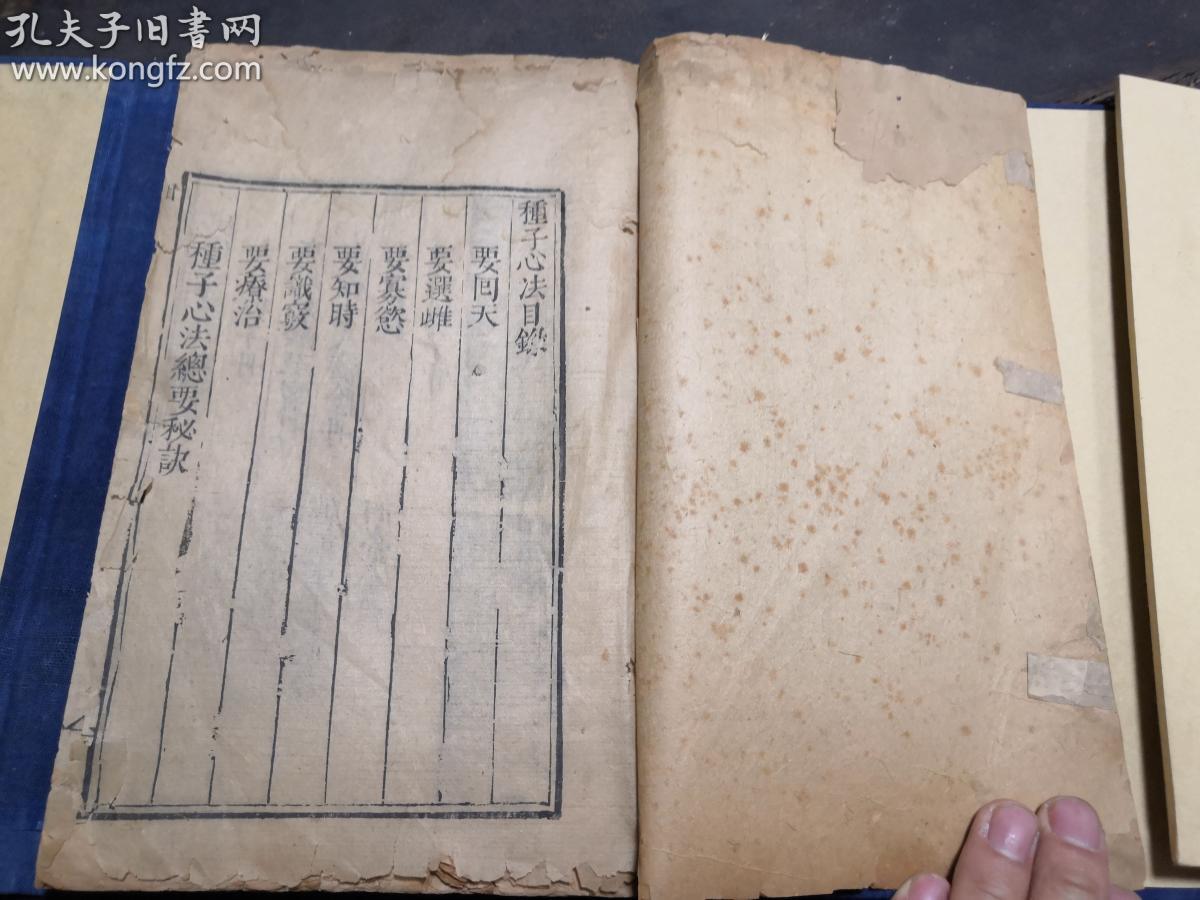 孔夫子旧书网
www.kongfz.com
種子心法目錄
要回天
要選雌
要寡慾
要知時
要識竅
要療治
種子心法總要秘訣